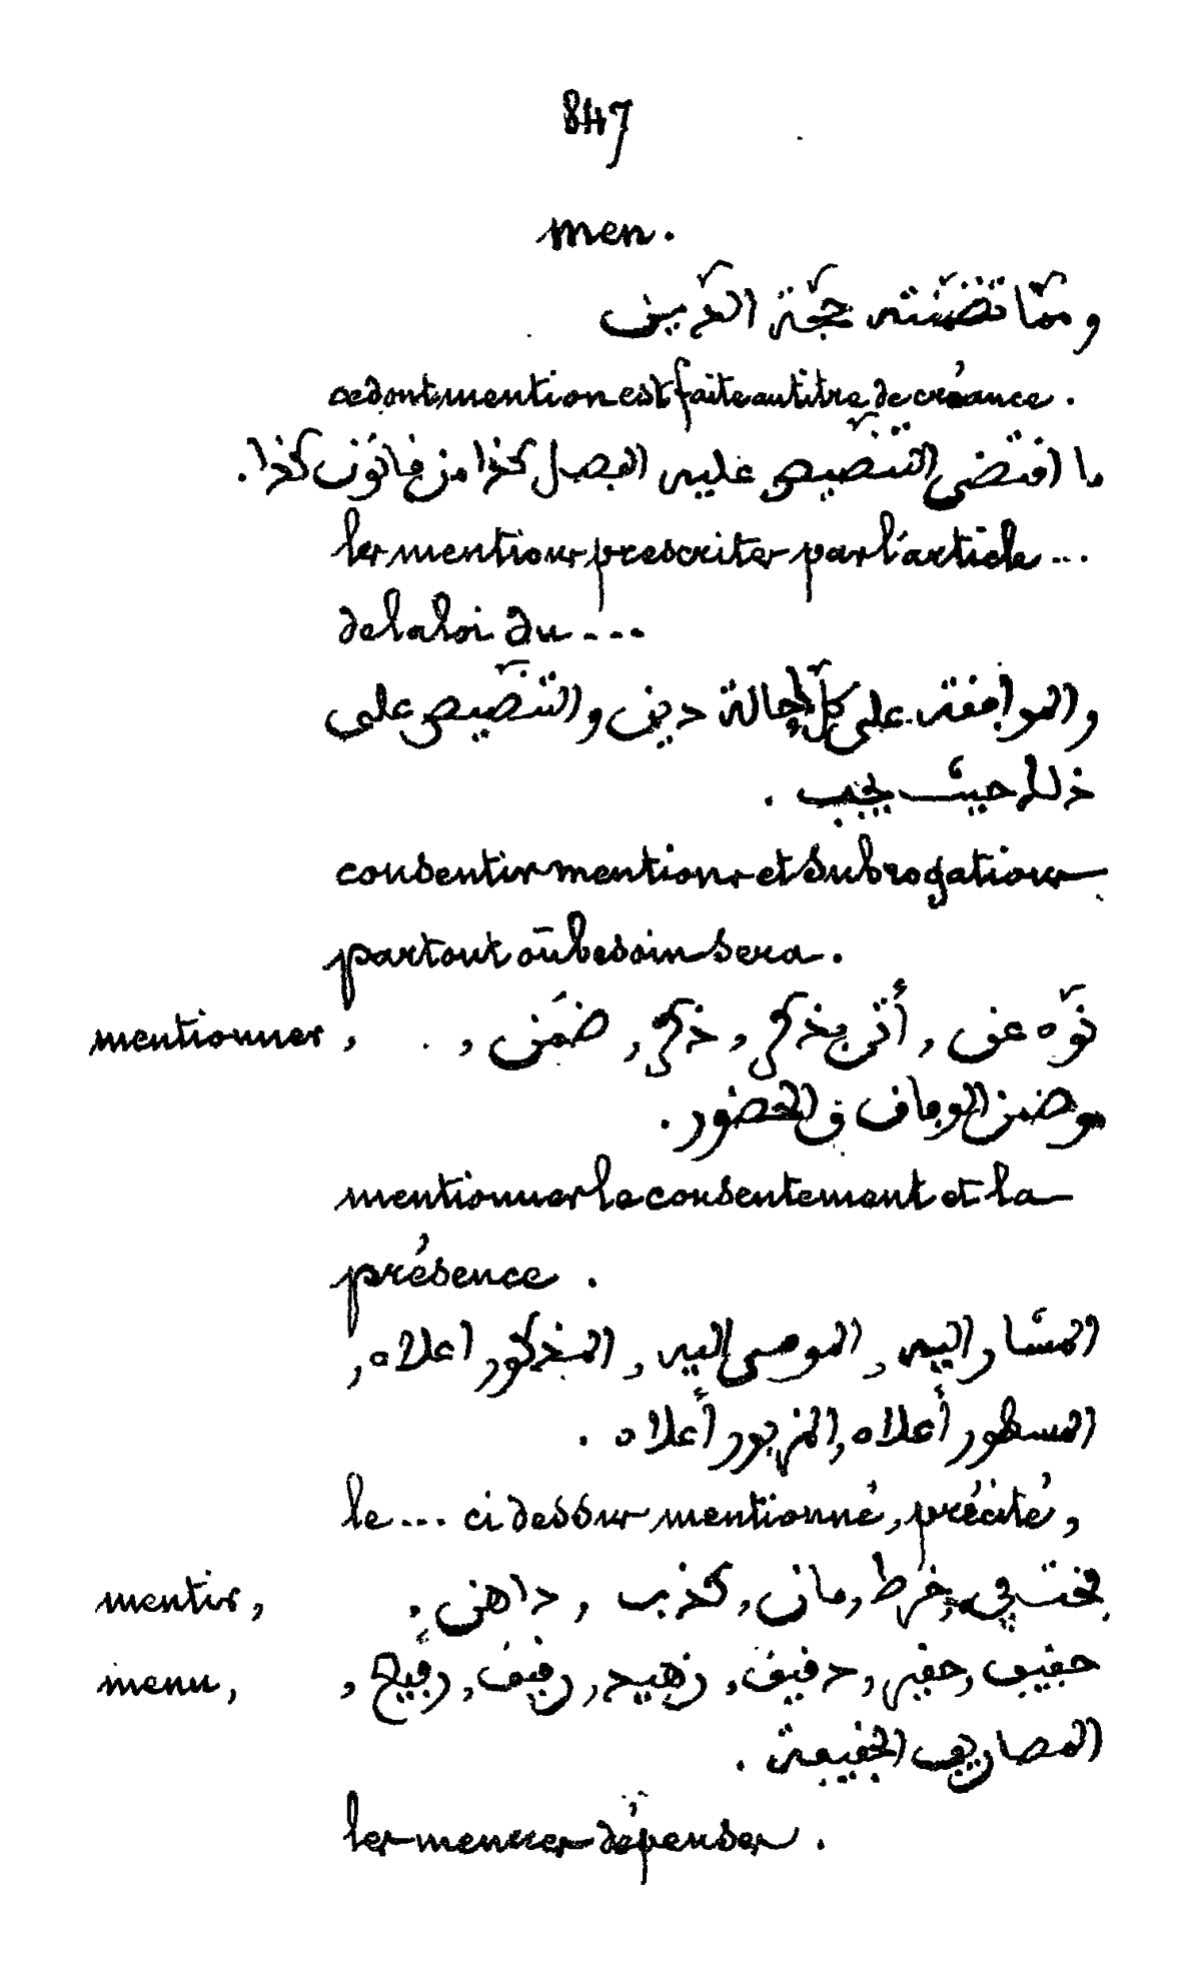 847
men.
وممّا تضمّنته حجّة الدّين
ce dont mention est faite au titre de créance.
ما اقتضى التنصّيص عليه الفصل كذا من قانون كذا.
les mentions prescrites par l'article ...
de la loi du ....
والموافقة على كلّ إحالة دين والتنصّيص على
ذلك حيث يجب.
consentir mentions et subrogations
partout où besoin sera.
mentionner, نوّه عن, أتى بذكر, ذكر, ضمّن,
وضمن الوفاق في الحضور.
mentionner le consentement et la
présence.
المشار اليه, الموصى اليه, المذكور اعلاه,
المسطور أعلاه, المزبور أعلاه.
le ... ci dessus mentionné, précité,
mentir, خرط, مان, كذب, داهن,
menu, حقير, دقيق, زهيد, رقيق,
المصاريف الخفيفة.
les menues dépenses.